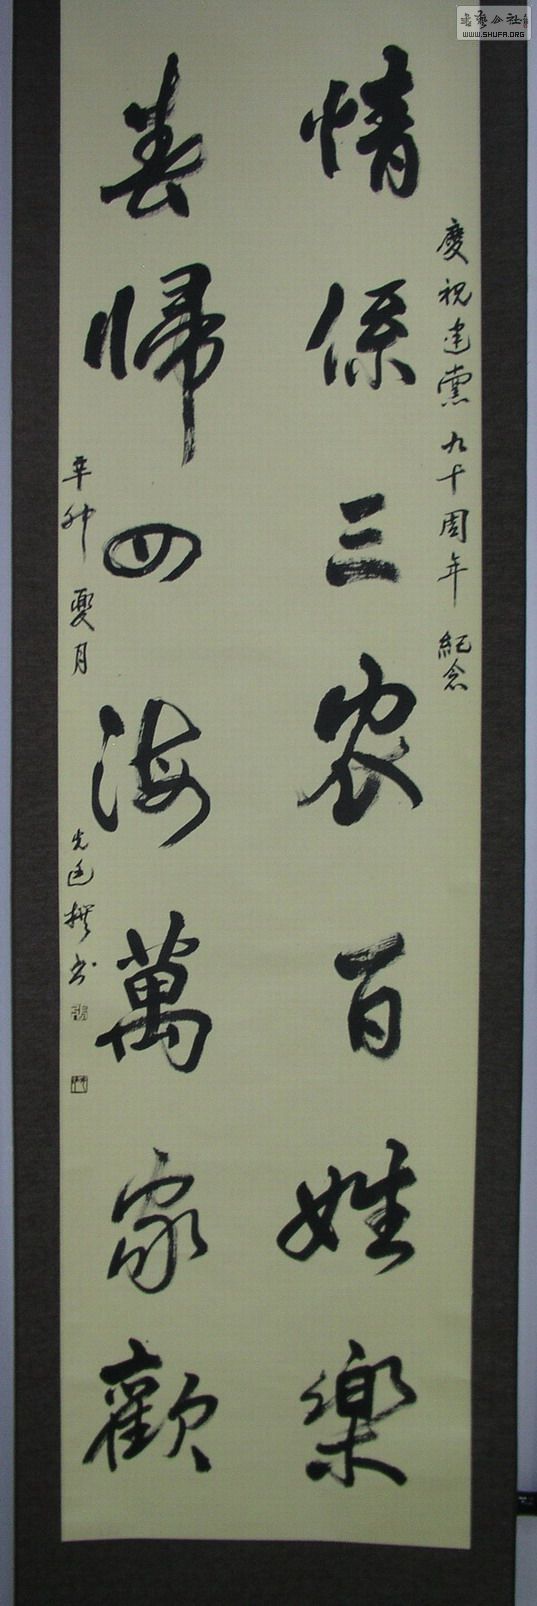 慶祝建黨九十周年紀念
情係三农百姓樂
春歸四海萬家歡
辛卯夏月
先達撰书
書藝公社
WWW.SHUFA.ORG